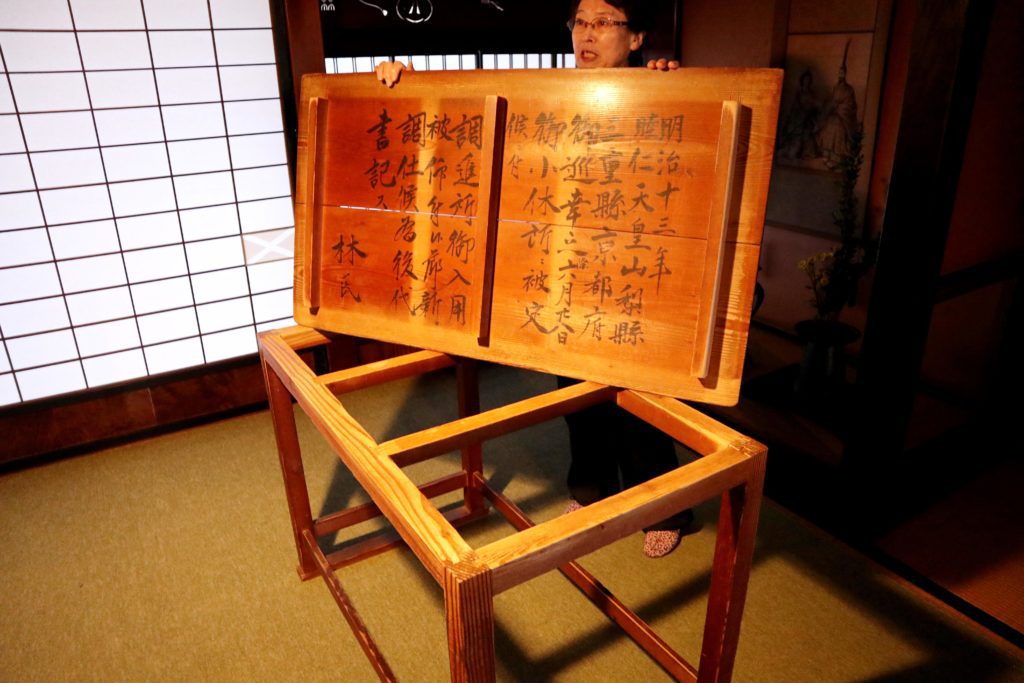 明治十三年
睦仁天皇山梨縣
三重縣京都府
御巡幸之際六月廿八日
御小休所ニ被定
候ニ付
調進所御入用
被仰付
調仕候為後代
書記ス
林民